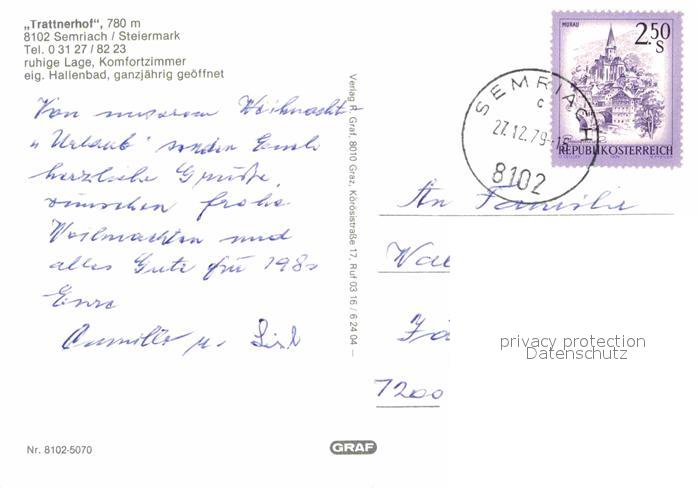 „Trattnerhof", 780 m
8102 Semriach / Steiermark
Tel. 0 31 27 / 82 23
ruhige Lage, Komfortzimmer
eig. Hallenbad, ganzjährig geöffnet
Von unserem Weihnacht-
"Urlaub" senden Euch
herzliche Grüße,
wünschen frohe
Weihnachten und
alles Gute für 1980
Eure
Camillo u. Lisl
Nr. 8102-5070
Verlag H. Graf, 8010 Graz, Körösistraße 17, Ruf 03 16 / 6 24 04
GRAF
MURAU
2.50
S
REPUBLIK ÖSTERREICH
SEMRIACH
c
27.12.79
8102
An Familie
7200
privacy protection
Datenschutz